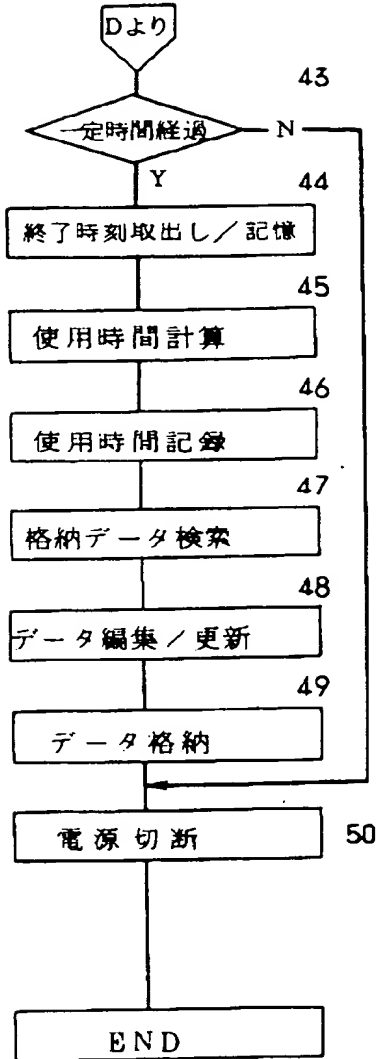 Dより
43
一定時間経過
N
Y
44
終了時刻取出し/記憶
45
使用時間計算
46
使用時間記録
47
格納データ検索
48
データ編集/更新
49
データ格納
電源切断
50
END